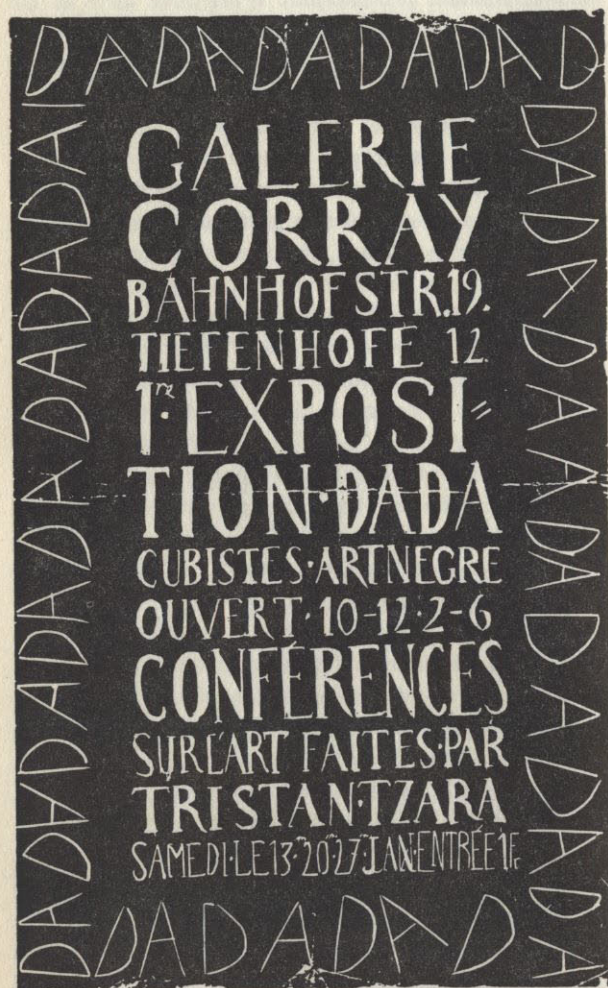 DADADADADAD
DADADADADADADADADAI
GALERIE
CORRAY
BAHNHOFSTR.19.
TIEFENHOFE 12.
1re·EXPOSI=
TION·DADA
CUBISTES·ART NEGRE
OUVERT·10-12·2-6
CONFÉRENCES
SUR L'ART FAITES·PAR
TRISTAN·TZARA
SAMEDI·LE 13·20·27·JAN·ENTRÉE 1Fr
DADADAADADADADADA
DADADAD